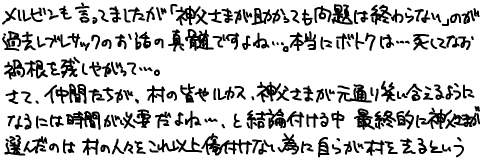 メルビンも言ってましたが「神父さまが助かっても問題は終わらない」のが
過去レブレサックのお話の真髄ですよね…。本当にボトクは…死してなお
禍根を残しやがって…。
さて、仲間たちが、村の皆やルカス、神父さまが元通り笑い合えるように
なるには時間が必要だよね…、と結論付ける中 最終的に神父さまが
選んだのは 村の人々をこれ以上傷付けない為に自らが村を去るという